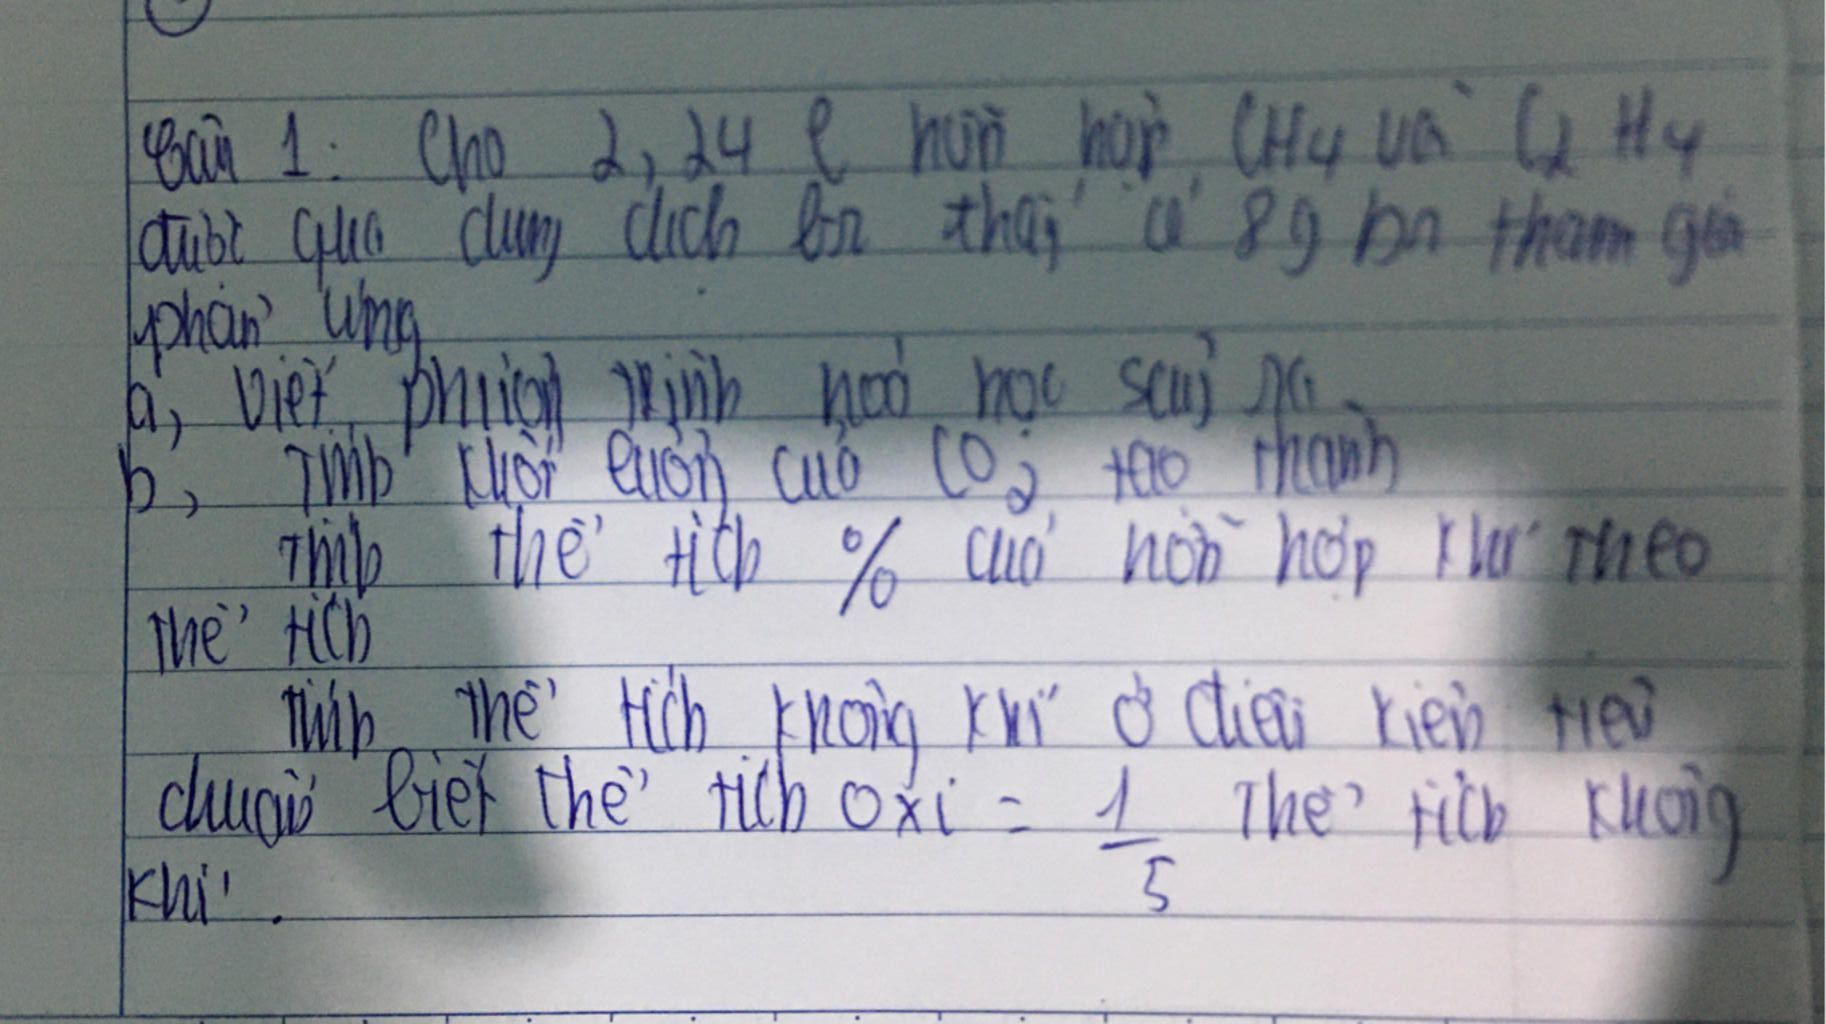 Bài 1: Cho 2,24 l hỗn hợp CH4 và C2H4
được qua dung dịch Br2 thấy có 8g br2 tham gia
phản ứng
a, Viết phương trình hoá học sảy ra
b, Tính khối lượng của CO2 tạo thành
Tính thể tích % của hỗn hợp khí theo
thể tích
Tính thể tích không khí ở điều kiện tiêu
chuẩn biết thể tích oxi = 1/5 thể tích không
khí.